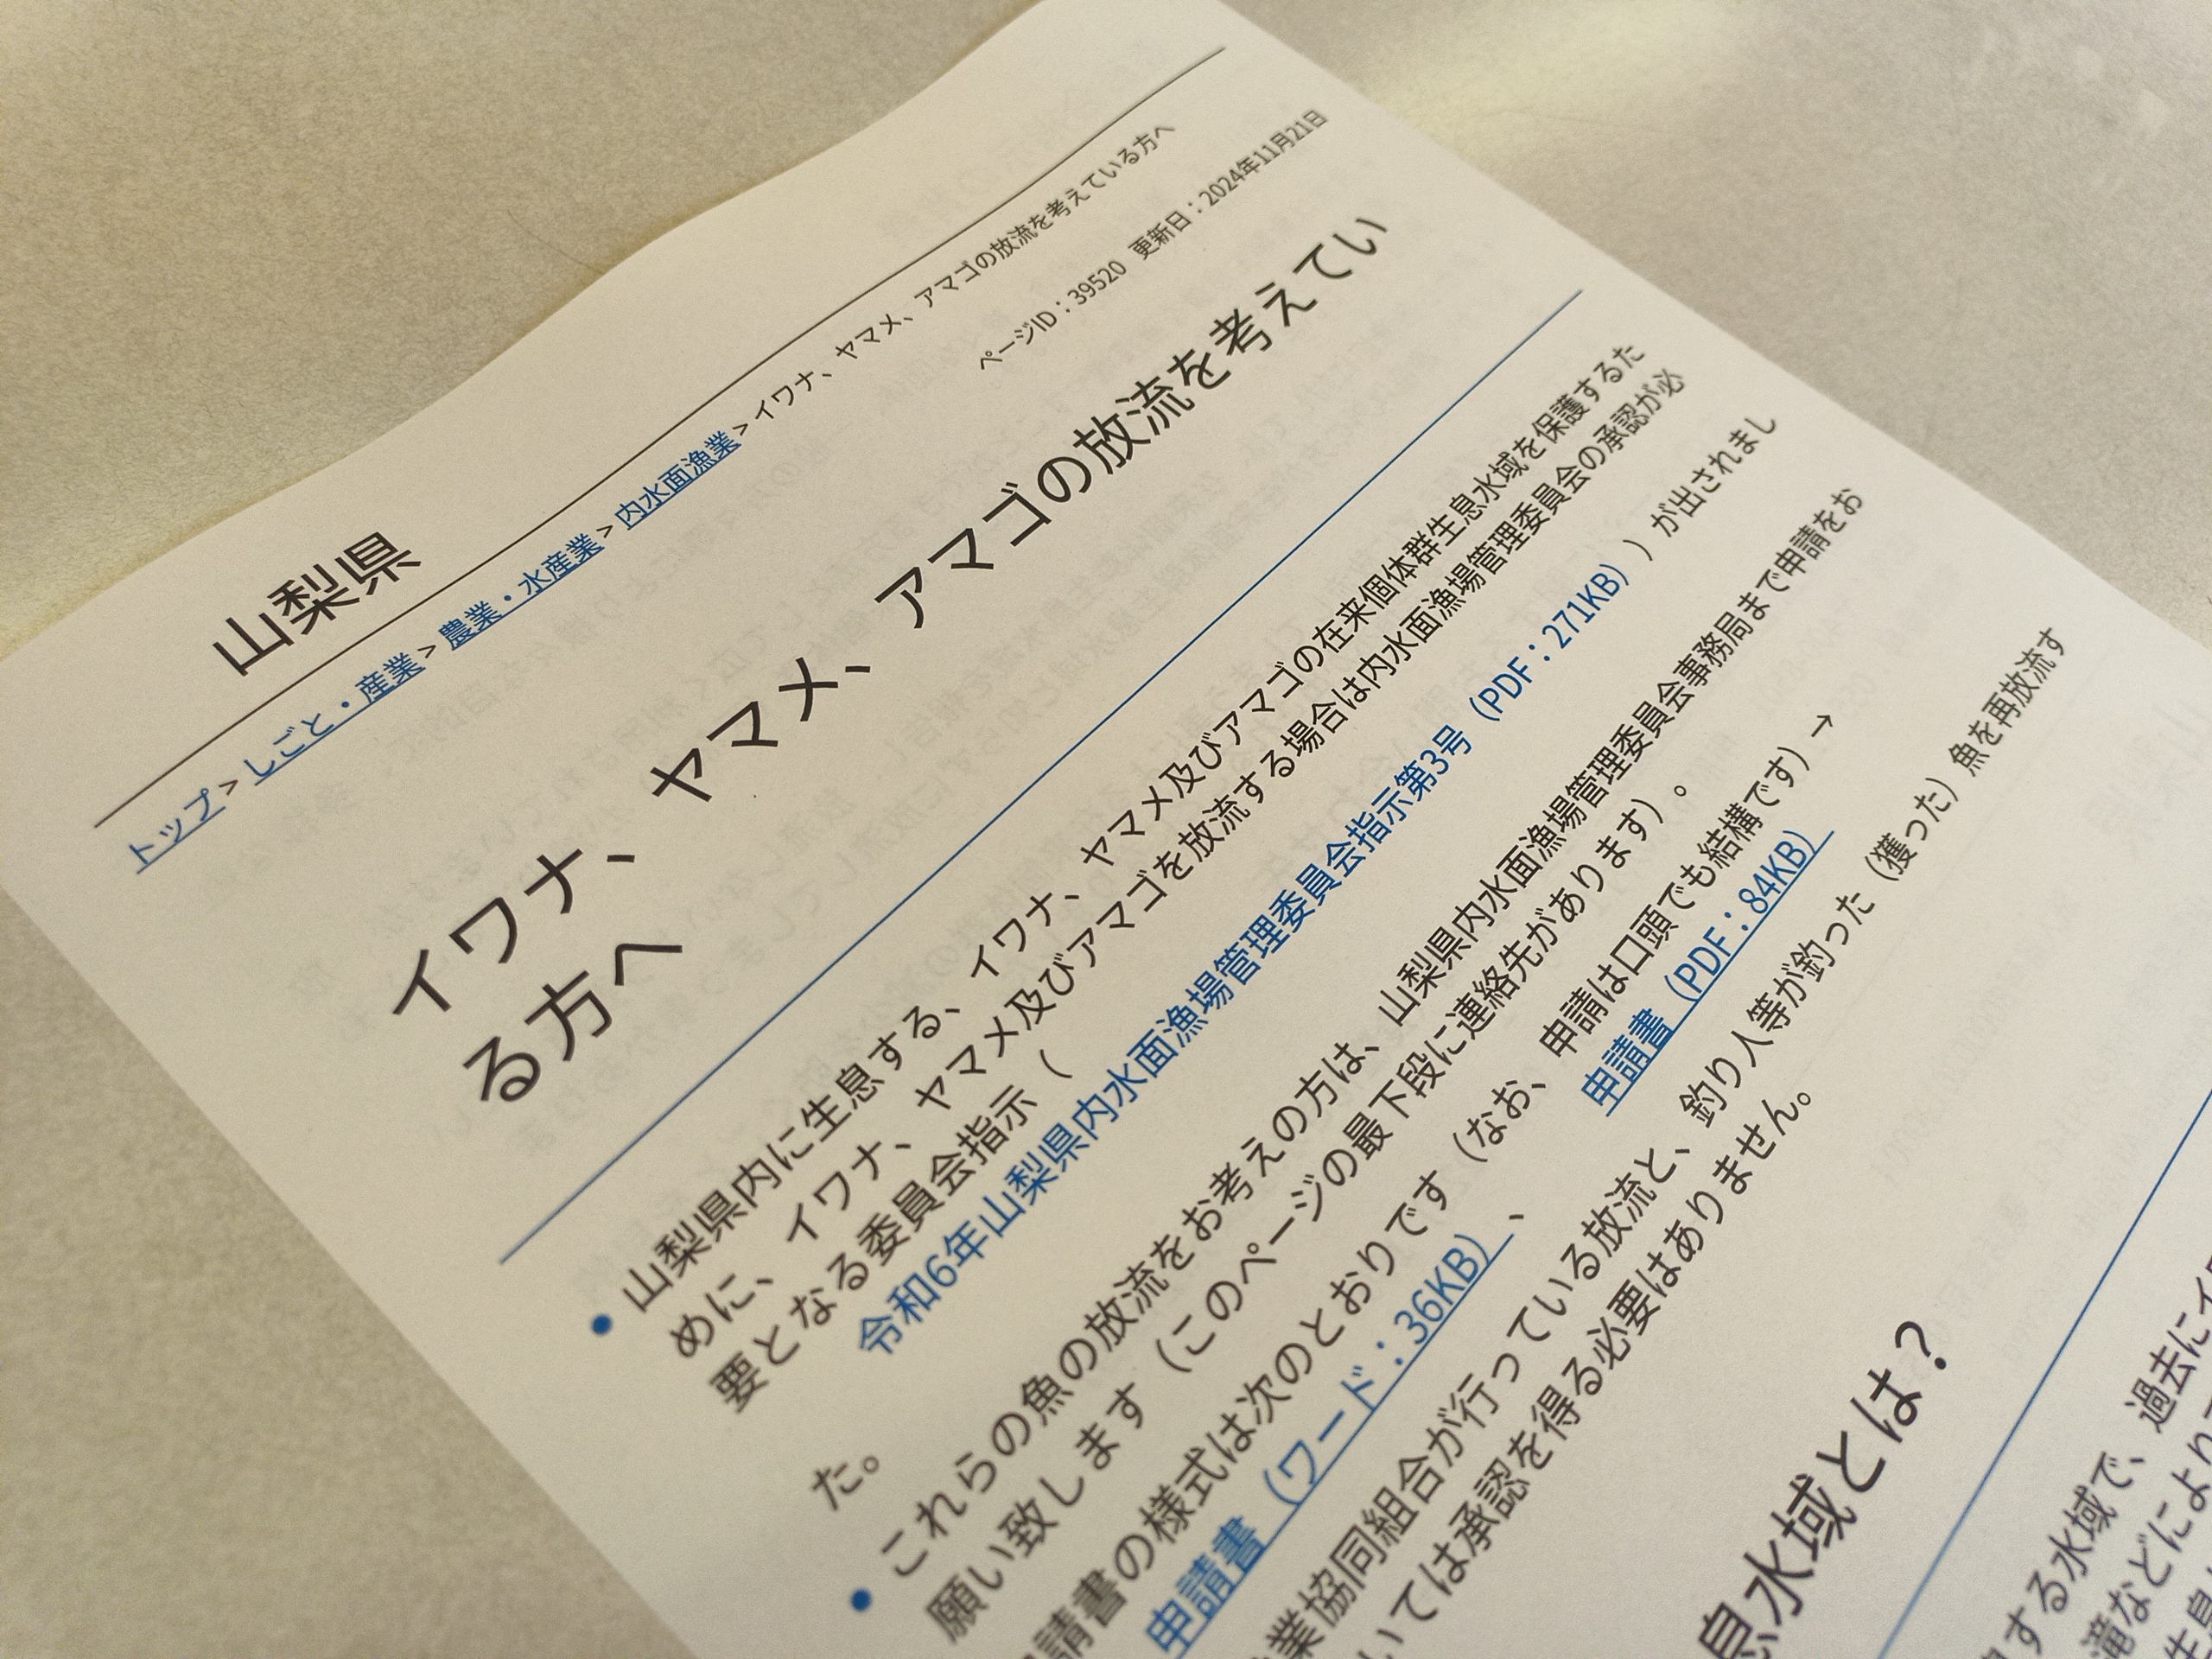 山梨県
トップ > しごと・産業 > 農業・水産業 > 内水面漁業 > イワナ、ヤマメ、アマゴの放流を考えている方へ
ページID：39520 更新日：2024年11月21日
イワナ、ヤマメ、アマゴの放流を考えてい
る方へ
• 山梨県内に生息する、イワナ、ヤマメ及びアマゴの在来個体群生息水域を保護するた
めに、イワナ、ヤマメ及びアマゴを放流する場合は内水面漁場管理委員会の承認が必
要となる委員会指示（
令和6年山梨県内水面漁場管理委員会指示第3号（PDF：271KB））が出されまし
た。
• これらの魚の放流をお考えの方は、山梨県内水面漁場管理委員会事務局まで申請をお
願い致します（このページの最下段に連絡先があります）。
請書の様式は次のとおりです（なお、申請は口頭でも結構です）→
申請書（ワード：36KB）、申請書（PDF：84KB）
業協同組合が行っている放流と、釣り人等が釣った（獲った）魚を再放流す
いては承認を得る必要はありません。
息水域とは？
する水域で、過去にイ
滝などにより